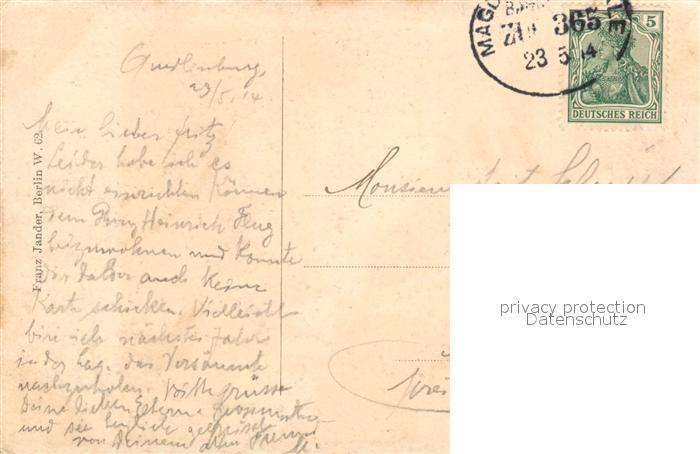 Quedlinburg,
23/5.14.
Mein lieber Fritz!
Leider habe ich es
nicht einrichten können
dem Prinz Heinrich Flug
beizuwohnen und konnte
Dir daher auch keine
Karte schicken. Vielleicht
bin ich nächstes Jahr
in der Lage, das Versäumte
nachzuholen. Bitte grüsse
Deine lieben Eltern u. Grossmutter
und sei herzlich gegrüsst
von Deinem alten Freund
Franz Jander, Berlin W. 62.
MAGD
BAHN
ZUG 365
23 5 14
5
DEUTSCHES REICH
Monsieur
privacy protection
Datenschutz